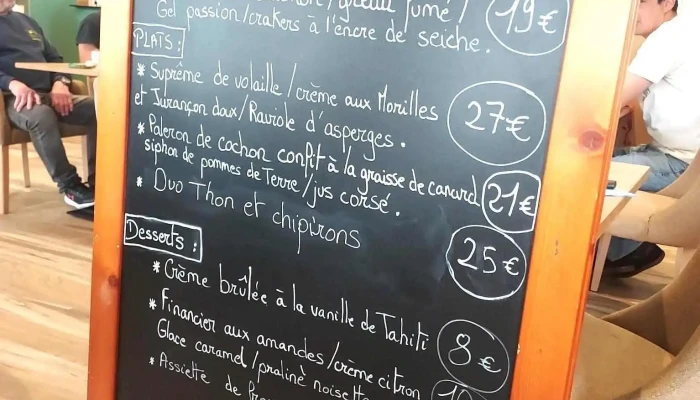 fumé /
Gel passion/crakers à l'encre de seiche.
19€
PLATS:
* Suprême de volaille/crème aux Morilles
et Jurançon doux/Raviole d'asperges.
27€
* Paleron de cochon confit à la graisse de canard
siphon de pommes de Terre/jus corsé.
21€
* Duo Thon et chipirons
25€
Desserts:
* Crème brûlée à la vanille de Tahiti
8€
* Financier aux amandes/crème citron
Glace caramel/praliné
* Assiette de